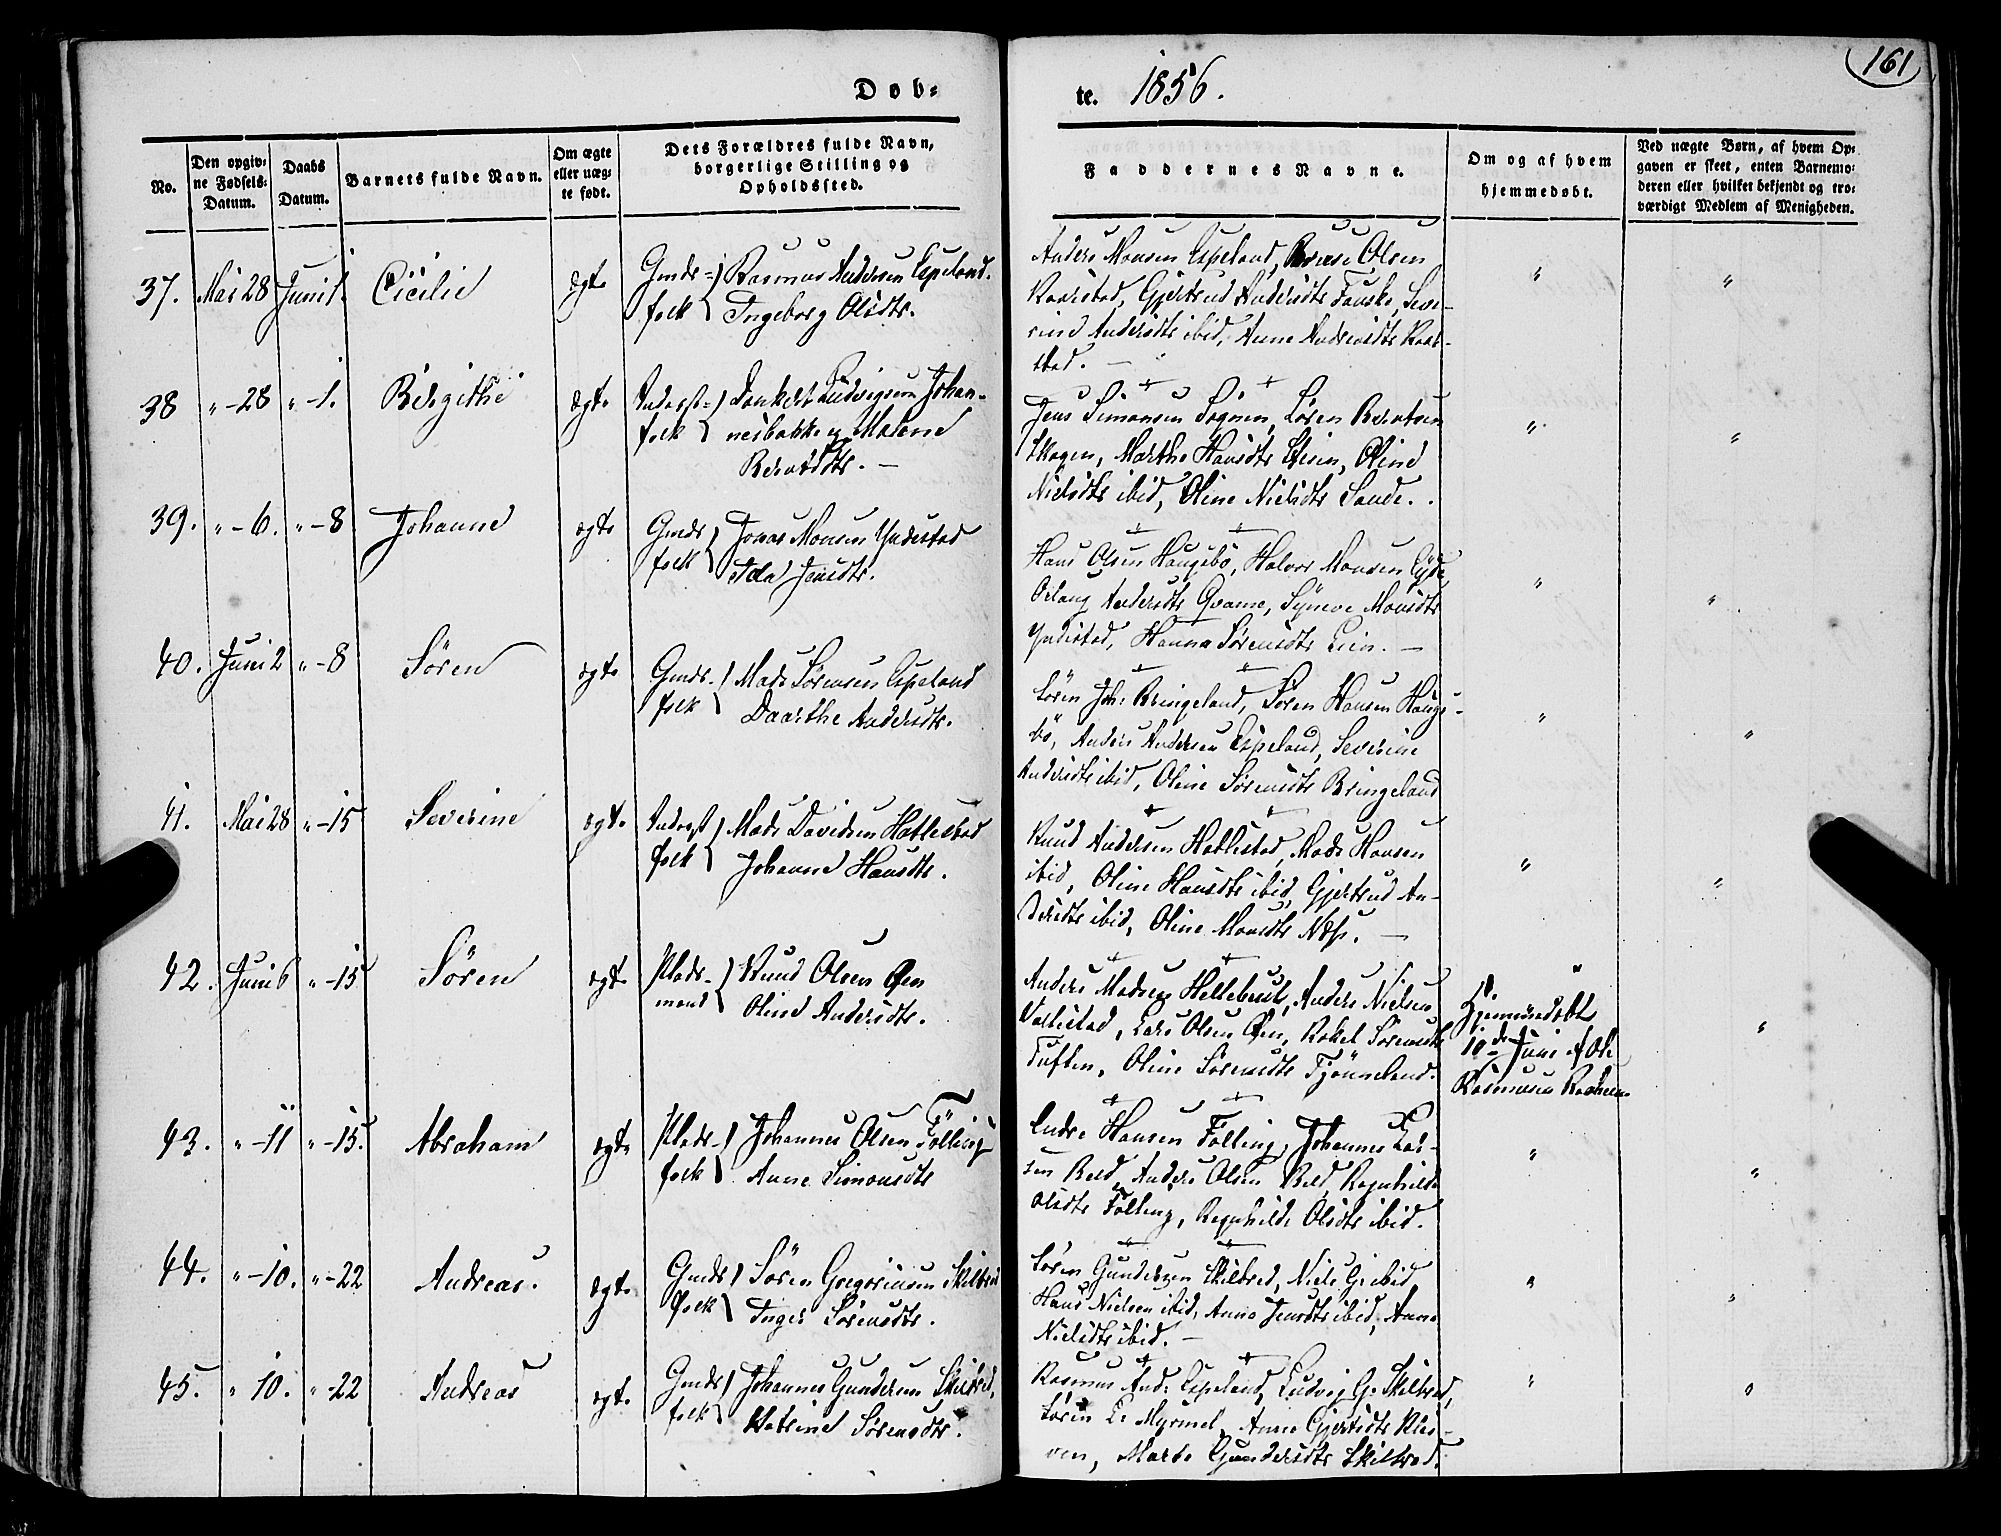 161
Døb-
te. 1856.
No.
Den opgiv-
ne Fødsels-
Datum.
Daabs
Datum.
Barnets fulde Navn.
Om ægte
eller uæg-
te født.
Dets Forældres fulde Navn,
borgerlige Stilling og
Opholdssted.
Faddernes Navne.
Om og af hvem
hjemmedøbt.
Ved uægte Børn, af hvem Op-
gaven er skeet, enten Barnemo-
deren eller hvilket bekjendt og tro-
værdigt Medlem af Menigheden.
37. Mai 28 Juni 1. Cicilie ægte Gmds- Rasmus Andersen Espeland.
folk Ingeborg Olsdtr.
Anders Monsen Espeland, Olsen
Gjertrud Andersdtr Fauske, Seve-
rine Andersdtr ibid, Anne
stad. —
" "
38 "-28 "-1. Birgithe ægte Inderst- Dankert Ludvigsen Johan-
folk nesbakke og Malene
Berntsdtr. —
Jens Simonsen Sognen, Søren Berntsen
Skogen, Marthe Hansdtr Steien, Oline
Nielsdtr ibid, Oline Nielsdtr Sande.
" "
39. "-6. "-8 Johanne ægte Gmds Jonas Monsen Yndestad
folk Ida Jensdtr.
Hans Olsen Haugebø, Halvor Monsen
Andersdtr Qvame, Synneve Monsdtr
Yndestad, Hanna Sørensdtr Lien. —
" "
40. Juni 2 "-8 Søren ægte Gmds- Mads Sørensen Espeland
folk Daarthe Andersdtr.
Søren Joh: Bringeland, Søren Hansen Hauge-
bø, Anders Andersen Espeland, Severine
Andersdtr ibid, Oline Sørensdtr Bringeland
" "
41. Mai 28 "-15 Severine ægte Inderst Mads Davidsen Hatlestad
folk Johanne Hansdtr.
Knud Andersen Hatlestad, Mads Hansen
ibid, Oline Hansdtr ibid, Gjertrud An-
dersdtr ibid, Oline Monsdtr Næss. —
" "
42. Juni 6 "-15 Søren ægte Plads- Knud Olsen Øen
mand Oline Andersdtr.
Anders Madsen Hellebust, Anders Nielsen
Lars Olsen Øen, Rakel Sørensdtr
Tuften, Oline Sørensdtr Tjønneland.
"
Hjemmedøbt
10de Juni af Ole
Rasmusen
"
43. "-11 "-15. Abraham ægte Plads- Johannes Olsen Følling
folk Anne Simonsdtr
Endre Hansen Følling, Johannes Lar-
sen Anders Olsen Ragnhilde
Olsdtr Følling, Ragnhilde Olsdtr ibid.
" "
44. "-10. "-22 Andreas. ægte Gmds Søren Gregoriusen Skilbred
folk Inger Sørensdtr.
Søren Gundersen Skilbred, Niels G. ibid,
Hans Nielsen ibid, Anna Jensdtr ibid, Anne
Nielsdtr ibid. —
" "
45. " 10. "-22 Andreas ægte Gmds Johannes Gundersen Skilbred,
folk Katrine Sørensdtr.
Rasmus And: Espeland, Ludvig G. Skilbred,
Søren L. Myrmel, Anne Gjertsdtr Klei-
ven, Marte Gundersdtr Skilbred.
" "